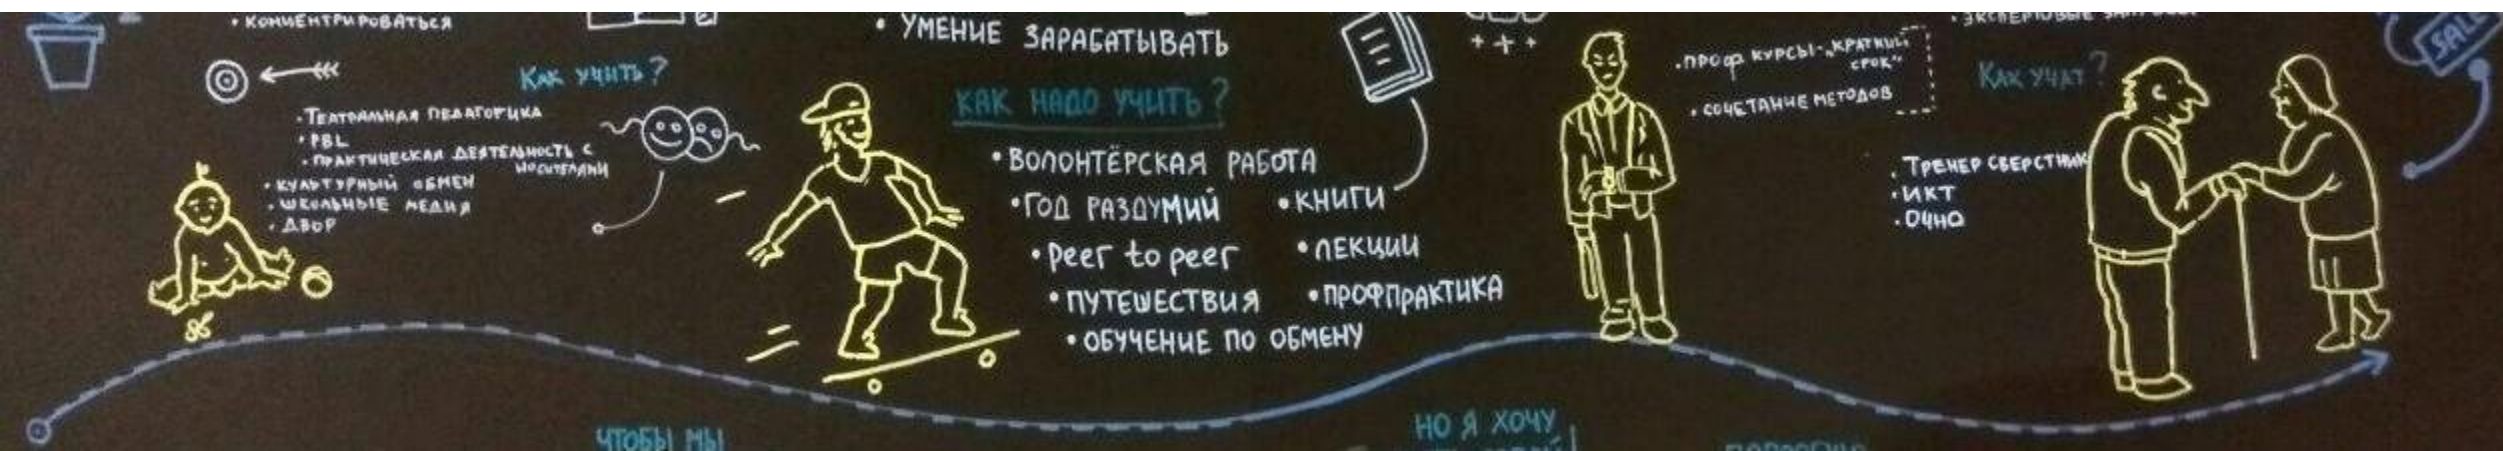 • КОНЦЕНТРИРОВАТЬСЯ
КАК УЧИТЬ?
• ТЕАТРАЛЬНАЯ ПЕДАГОГИКА
• PBL
• ПРАКТИЧЕСКАЯ ДЕЯТЕЛЬНОСТЬ С
НОСИТЕЛЯМИ
• КУЛЬТУРНЫЙ ОБМЕН
• ШКОЛЬНЫЕ МЕДИА
• ДВОР
• УМЕНИЕ ЗАРАБАТЫВАТЬ
КАК НАДО УЧИТЬ?
• ВОЛОНТЁРСКАЯ РАБОТА
• ГОД РАЗДУМИЙ
• Peer to peer
• ПУТЕШЕСТВИЯ
• ОБУЧЕНИЕ ПО ОБМЕНУ
• КНИГИ
• ЛЕКЦИИ
• ПРОФПРАКТИКА
+ + +
• ПРОФ КУРСЫ - „КРАТКИЙ
СРОК"
• СОЧЕТАНИЕ МЕТОДОВ
КАК УЧАТ?
• ТРЕНЕР СВЕРСТНИК
• ИКТ
• ОЧНО
SALE
ЧТОБЫ МЫ
НО Я ХОЧУ